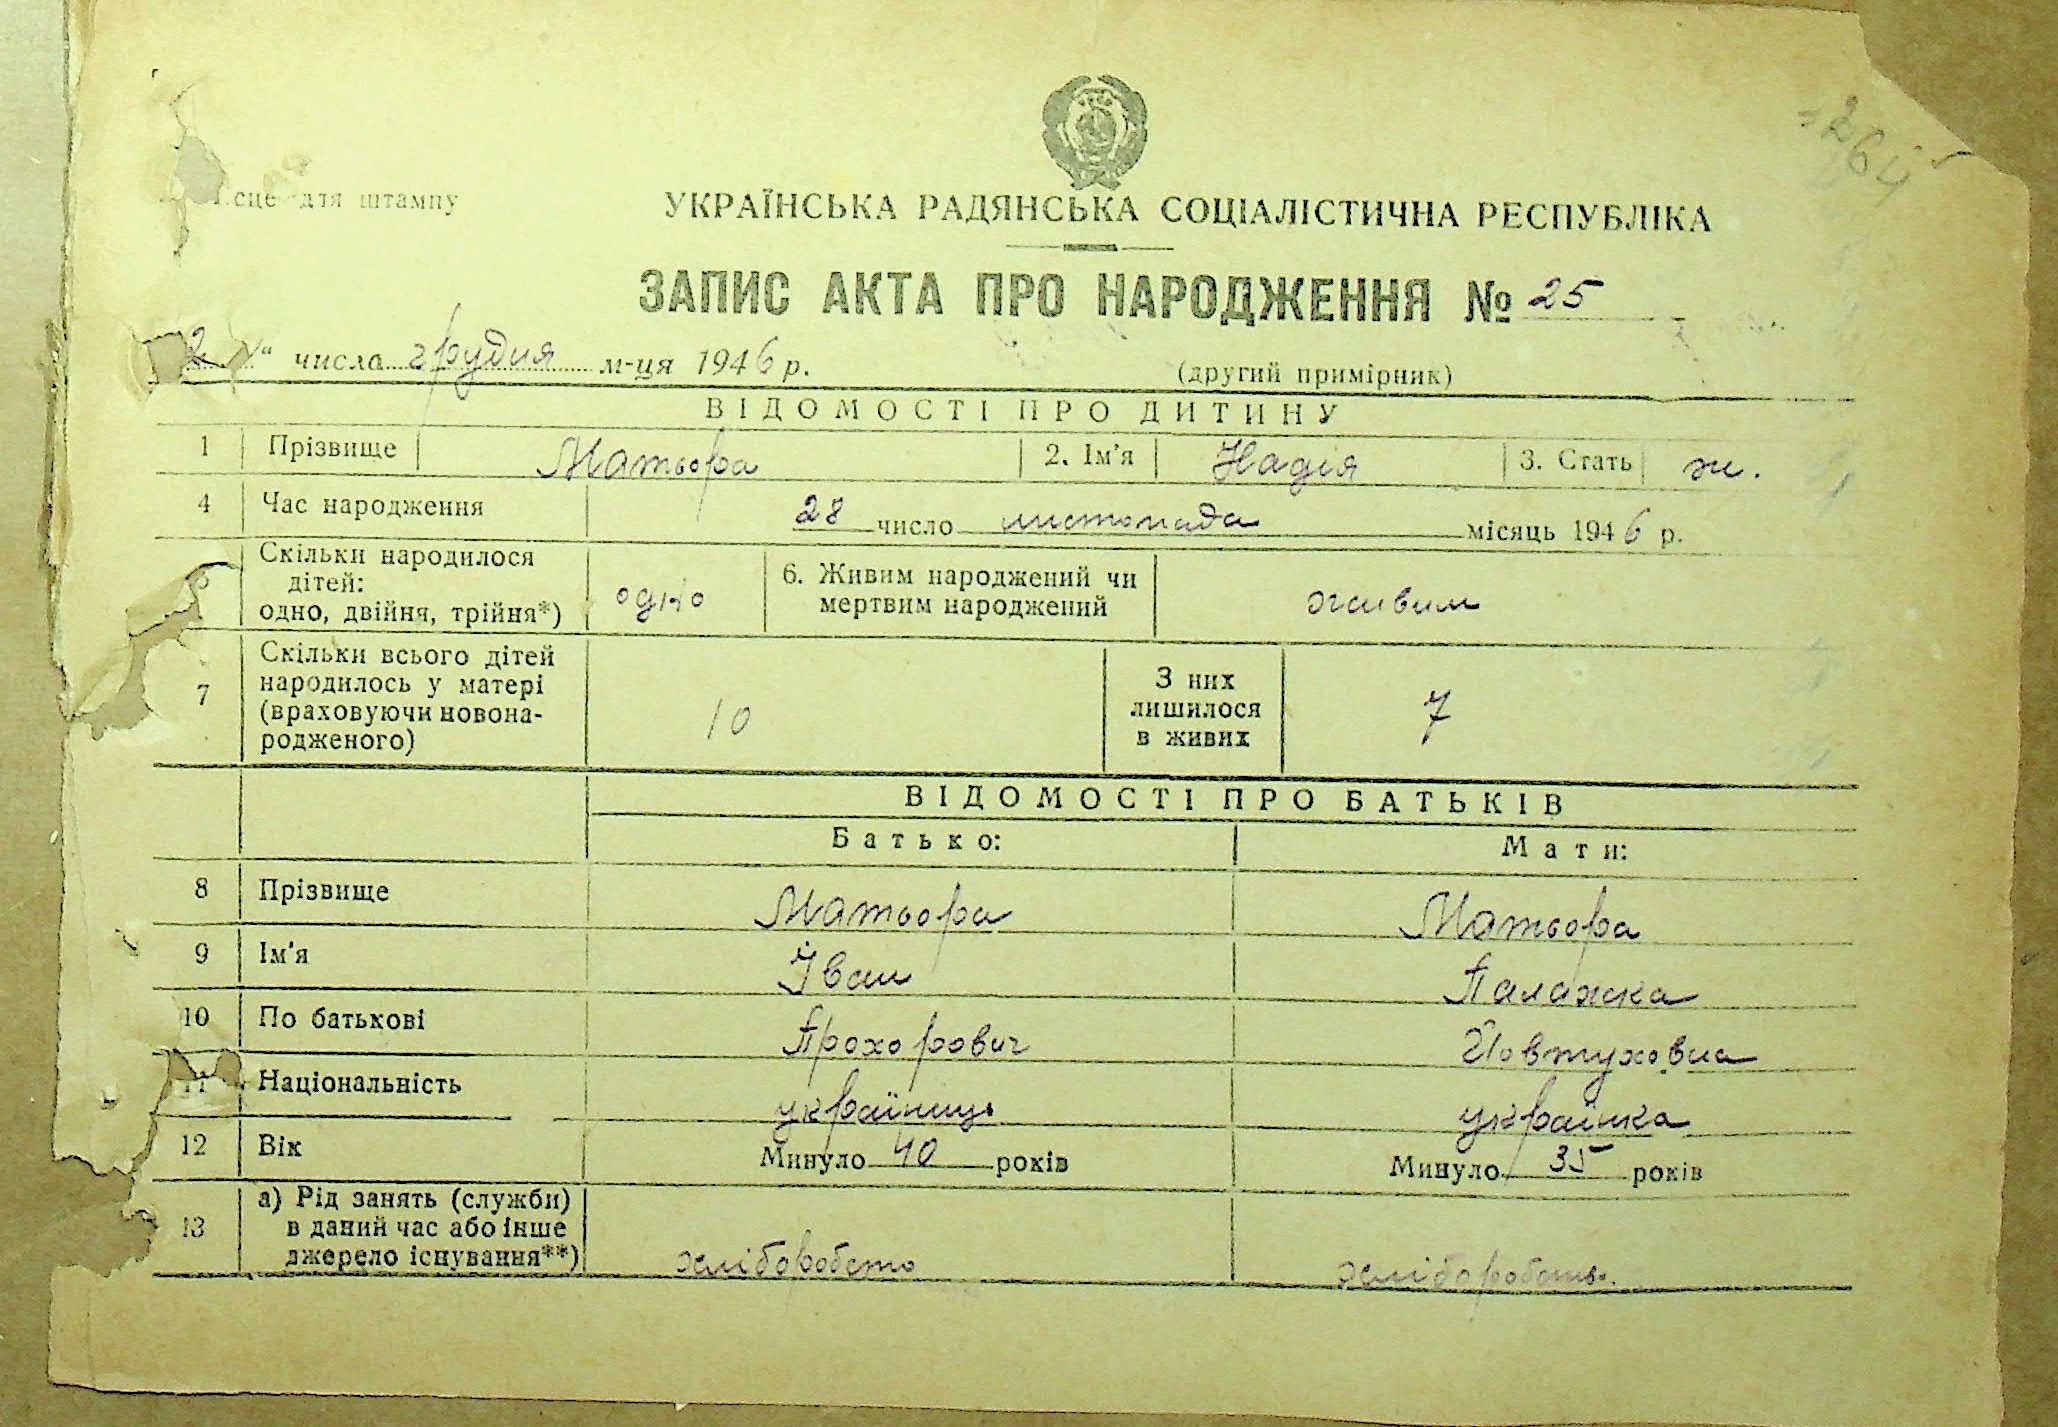 264
сце для штампу
УКРАЇНСЬКА РАДЯНСЬКА СОЦІАЛІСТИЧНА РЕСПУБЛІКА
ЗАПИС АКТА ПРО НАРОДЖЕННЯ № 25
2 " числа грудня м-ця 1946 р.
(другий примірник)
ВІДОМОСТІ ПРО ДИТИНУ
1 Прізвище Матьора 2. Ім'я Надія 3. Стать ж.
4 Час народження 28 число листопада місяць 1946 р.
5 Скільки народилося
дітей:
одно, двійня, трійня*) одно 6. Живим народжений чи
мертвим народжений живим
7 Скільки всього дітей
народилось у матері
(враховуючи новона-
родженого) 10 З них
лишилося
в живих 7
ВІДОМОСТІ ПРО БАТЬКІВ
Батько: Мати:
8 Прізвище Матьора Матьора
9 Ім'я Іван Палажка
10 По батькові Прохорович Йовтуховна
11 Національність українць українка
12 Вік Минуло 40 років Минуло 35 років
13 а) Рід занять (служби)
в даний час або інше
джерело існування**) хліборобство хліборобство